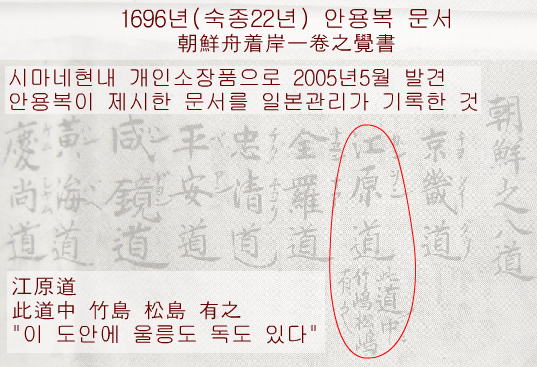 1696년(숙종22년) 안용복 문서
朝鮮舟着岸一卷之覺書
시마네현내 개인소장품으로 2005년5월 발견
안용복이 제시한 문서를 일본관리가 기록한 것
朝鮮之八道
京畿道
江原道
此道中
竹嶋松嶋
有之
全羅道
忠清道
平安道
咸鏡道
黃海道
慶尚道
江原道
此道中 竹島 松島 有之
"이 도안에 울릉도 독도 있다"